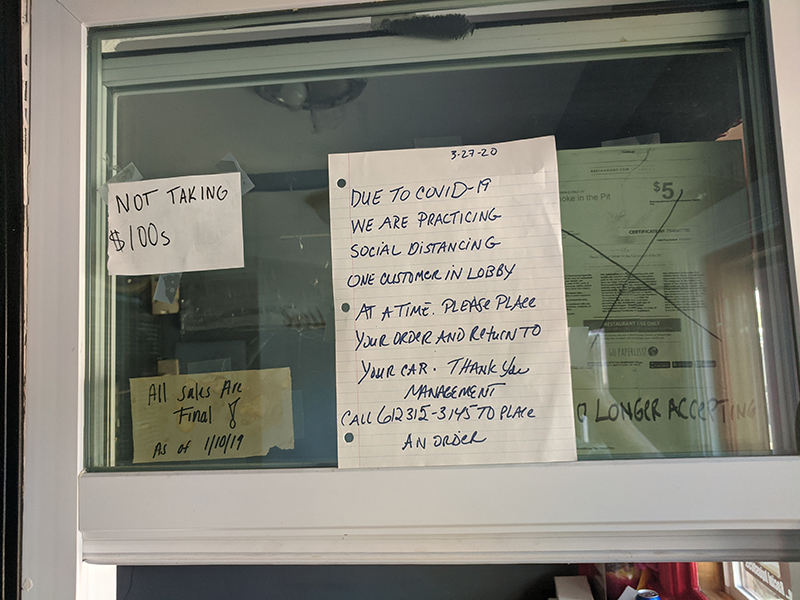 NOT TAKING
$100s
All Sales Are
Final !
As of 1/10/19
3-27-20
DUE TO COVID-19
WE ARE PRACTICING
SOCIAL DISTANCING
ONE CUSTOMER IN LOBBY
AT A TIME. PLEASE PLACE
YOUR ORDER AND RETURN TO
YOUR CAR. THANK YOU
MANAGEMENT
CALL 612 315-3145 TO PLACE
AN ORDER
$5
oke in the Pit
CERTIFICATE
RESTAURANT USE ONLY
GO PAPERLESS!
O LONGER ACCEPTING